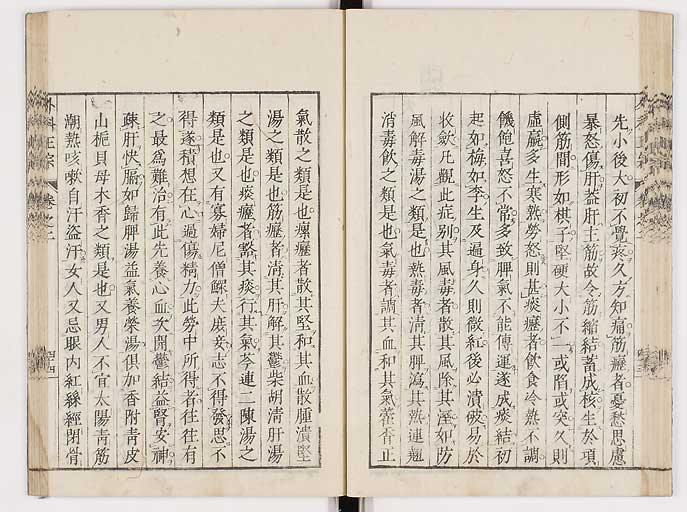 先小後大初不覺疼久方知痛筋癧者憂愁思慮
暴怒傷肝葢肝主筋故令筋縮結蓄成核生於項
側筋間形如棋子堅硬大小不一或陷或突久則
虛羸多生寒熱勞怒則甚痰癧者飲食冷熱不調
饑飽喜怒不常多致脾氣不能傳運遂成痰結初
起如梅如李生及遍身久則微紅後必潰破易於
收斂凡觀此症别其風毒者散其風除其濕如防
風解毒湯之類是也熱毒者清其脾瀉其熱連翹
消毒飲之類是也氣毒者調其血和其氣藿香正
氣散之類是也瘰癧者散其堅和其血散腫潰堅
湯之類是也筋癧者清其肝解其鬱柴胡清肝湯
之類是也痰癧者豁其痰行其氣芩連二陳湯之
類是也又有寡婦尼僧鰥夫庶妾志不得發思不
得遂積想在心過傷精力此勞中所得者往往有
之最爲難治有此先養心血次開鬱結益腎安神
疎肝快膈如歸脾湯益氣養榮湯俱加香附青皮
山梔貝母木香之類是也又男人不宜太陽青筋
潮熱咳嗽自汗盜汗女人又忌眼内紅絲經閉骨
外科正宗
卷之二